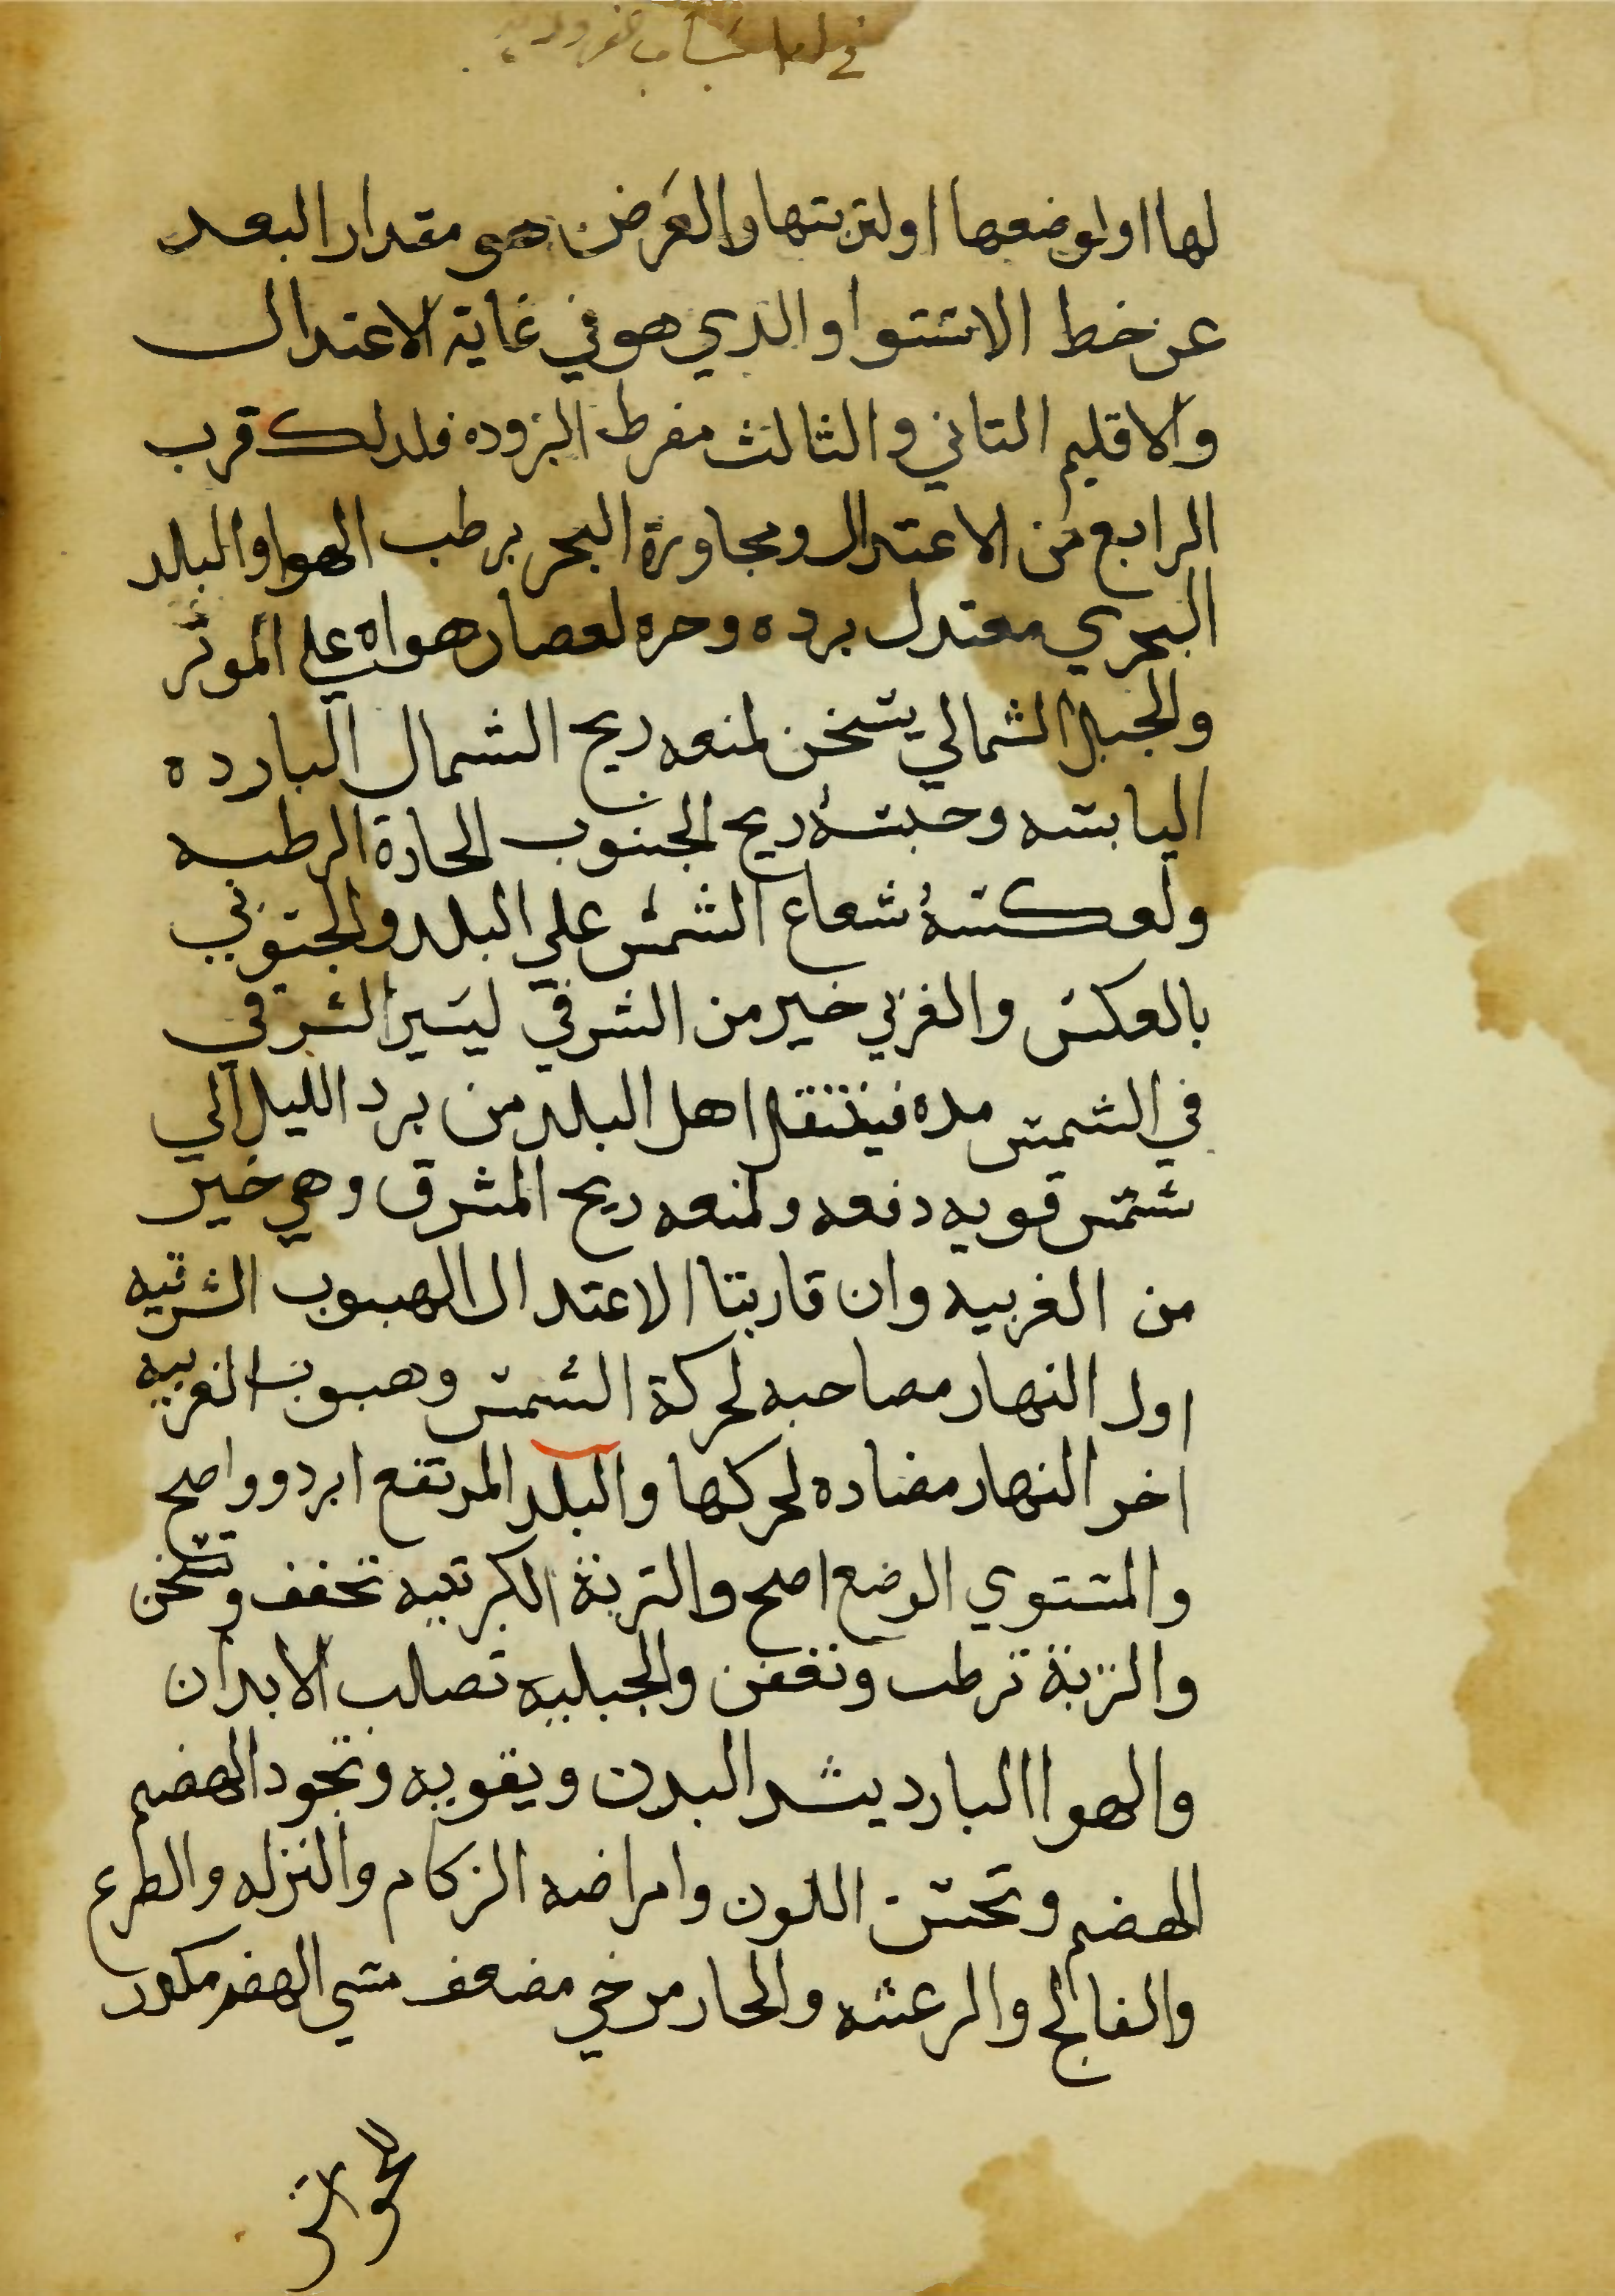 لها او لوضعها او لتربتها والعَرض هو مقدار البعد
عن خط الاستوا والذي هو في غاية الاعتدال
والاقليم الثاني والثالث مفرط البروده فلدلك قرب
الرابع من الاعتدال ومجاورة البحر يرطب الهوا والبلد
البحري معتدل برده وحره لعصاں هواه علي الموثر
والجبل الشمالي يسخن لمنعه ريح الشمال البارده
اليابسه وحبسهُ ريح الجنوب الحارة الرطبه
ولعكسهُ شعاع الشمس علي البلد والجنوبي
بالعكس والغربي خير من الشرقي ليسير الشرقي
في الشمس مده فينتقل اهل البلد من برد الليل الي
شمس قويه دفعه ولمنعه ريح المشرق وهي خير
من الغربيه وان قاربتا الاعتدال الهبوب الشرقيه
اول النهار مصاحبه لحركة الشمس وهبوب الغربيه
اخر النهار مضاده لحركها والبلد المرتفع ابرد وواصح
والمستوي الوضع اصح والتربة الكبرتييه تخفف وتسخن
والنزبة ترطب وتعفن والجبلييه تصلب الابدان
والهوا البارد يشد البدن ويقويه وتجود الهضم
الهضم وتحسن اللون وامراضه الزكام والنزله والصرع
والفالج والرعشه والحار مرخي مضعف مسي الهضم مكدر
للحواس